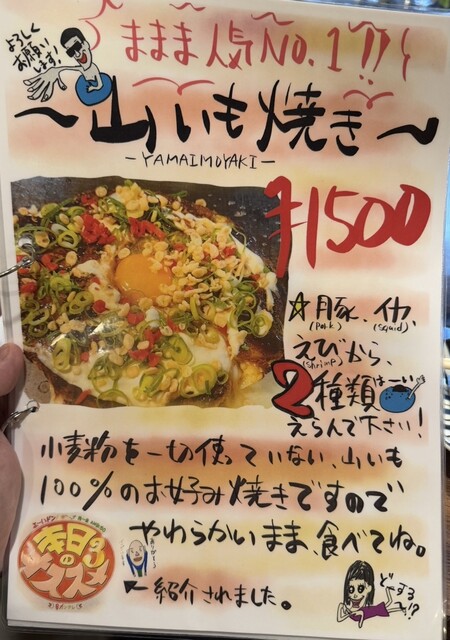 ままま人気NO.1!!
よろしく
お願い
します!
~山いも焼き~
-YAMAIMOYAKI-
¥1500
☆豚、イカ、
(Pork) (squid)
えびから、
(shrimp)
2種類
えらんで下さい!
小麦粉を一切使っていない、山いも
100%のお好み焼きですので
やわらかいまま、食べてね。
オススメ
←紹介されました。
どーする
!?